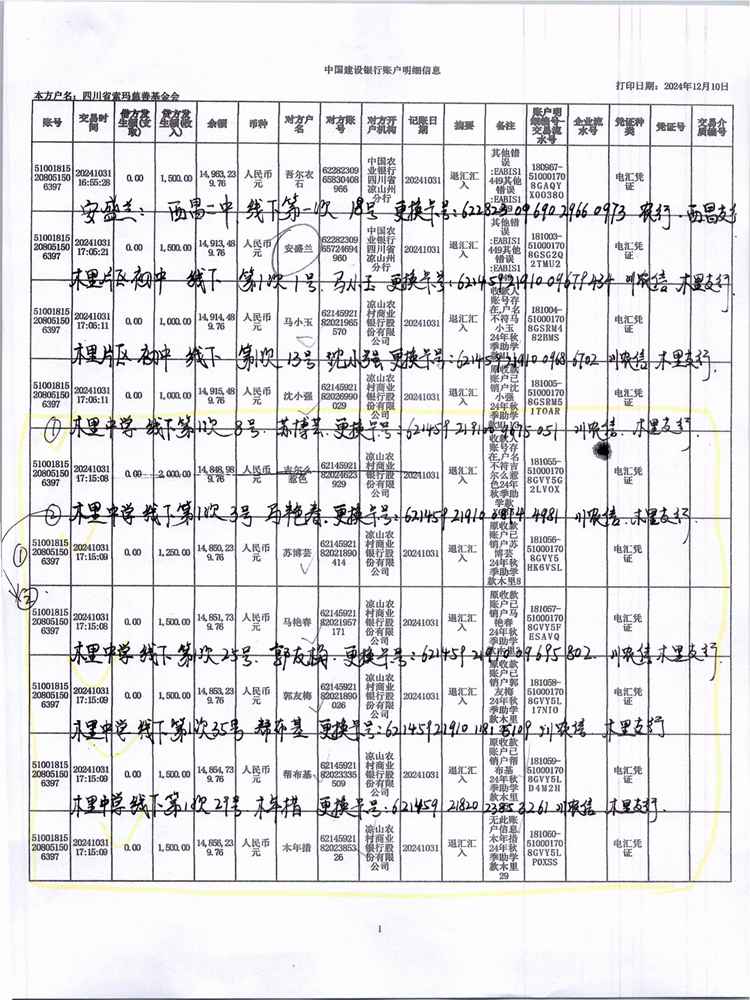 中国建设银行账户明细信息
打印日期：2024年12月10日
本方户名：四川省索玛慈善基金会
账号 交易时间 借方发生额(支取) 贷方发生额(收入) 余额 币种 对方户名 对方账号 对方开户机构 记账日期 摘要 备注 账户明细编号-交易流水号 企业流水号 凭证种类 凭证号 交易介质编号
51001815208051506397 20241031 16:55:28 0.00 1,500.00 14,963,239.76 人民币元 吾尔农石 6228230965830408966 中国农业银行四川省凉山州分行 20241031 退汇汇入 其他错误:EABIS1449其他错误:EABIS1 180967-510001708GAQYX00380 电汇凭证
安盛兰：西昌二中 线下第一次 18号 更换卡号：6228230969029660973 农行．西昌支行
51001815208051506397 20241031 17:05:21 0.00 1,500.00 14,913,489.76 人民币元 安盛兰 6228230965724694960 中国农业银行四川省凉山州分行 20241031 退汇汇入 其他错误:EABIS1449其他错误:EABIS1 181003-510001708GSG2Q2TMU2 电汇凭证
木里片区初中 线下 第1次 1号．马小玉 更换卡号：6214592191009679434 川农信．木里支行．
51001815208051506397 20241031 17:06:11 0.00 1,000.00 14,914,489.76 人民币元 马小玉 6214592182021965570 凉山农村商业银行股份有限公司 20241031 退汇汇入 收款人账号存在,户名不符马小玉24年秋季助学款 181004-510001708GSRM482BMS 电汇凭证
木里片区 初中 线下 第1次 13号 沈小强 更换卡号：6214592191009686702 川农信．木里支行．
51001815208051506397 20241031 17:06:11 0.00 1,000.00 14,915,489.76 人民币元 沈小强 6214592182026990029 凉山农村商业银行股份有限公司 20241031 退汇汇入 原收款账户已销户沈小强24年秋季助学款 181005-510001708GSRM51T0AR 电汇凭证
① 木里中学 线下第1次 8号．苏博芸．更换卡号： 川农信．木里支行．
51001815208051506397 20241031 17:15:08 0.00 2,000.00 14,848,989.76 人民币元 吉尔么惹色 6214592182024623929 凉山农村商业银行股份有限公司 20241031 退汇汇入 收款人账号存在,户名不符吉尔么惹色24年秋季助学款 181055-510001708GVY5G2LVOX 电汇凭证
② 木里中学 线下第1次 3号 马艳春．更换卡号： 川农信．木里支行．
51001815208051506397 20241031 17:15:08 0.00 1,250.00 14,850,239.76 人民币元 苏博芸 6214592182021890414 凉山农村商业银行股份有限公司 20241031 退汇汇入 原收款账户已销户苏博芸24年秋季助学款木里8 181056-510001708GVY5HK6VSL 电汇凭证
①
②
51001815208051506397 20241031 17:15:08 0.00 1,500.00 14,851,739.76 人民币元 马艳春 6214592182021957171 凉山农村商业银行股份有限公司 20241031 退汇汇入 原收款账户已销户马艳春24年秋季助学款木里 181057-510001708GVY5FESAVQ 电汇凭证
木里中学 线下 第1次 25号．郭友梅．更换卡号： 川农信 木里支行．
51001815208051506397 20241031 17:15:09 0.00 1,500.00 14,853,239.76 人民币元 郭友梅 6214592182021890026 凉山农村商业银行股份有限公司 20241031 退汇汇入 原收款账户已销户郭友梅24年秋季助学款木里 181058-510001708GVY5L17NIO 电汇凭证
木里中学 线下 第1次 35号 帮布基 更换卡号： 川农信 木里支行
51001815208051506397 20241031 17:15:09 0.00 1,500.00 14,854,739.76 人民币元 帮布基 6214592182023335509 凉山农村商业银行股份有限公司 20241031 退汇汇入 原收款账户已销户帮布基24年秋季助学款木里 181059-510001708GVY5LD4M2H 电汇凭证
木里中学 线下第1次 29号 木年措 更换卡号： 川农信 木里支行．
51001815208051506397 20241031 17:15:09 0.00 1,500.00 14,856,239.76 人民币元 木年措 621459218202385326 凉山农村商业银行股份有限公司 20241031 退汇汇入 无此账户信息木年措24年秋季助学款木里29 181060-510001708GVY5LP0XSS 电汇凭证
1